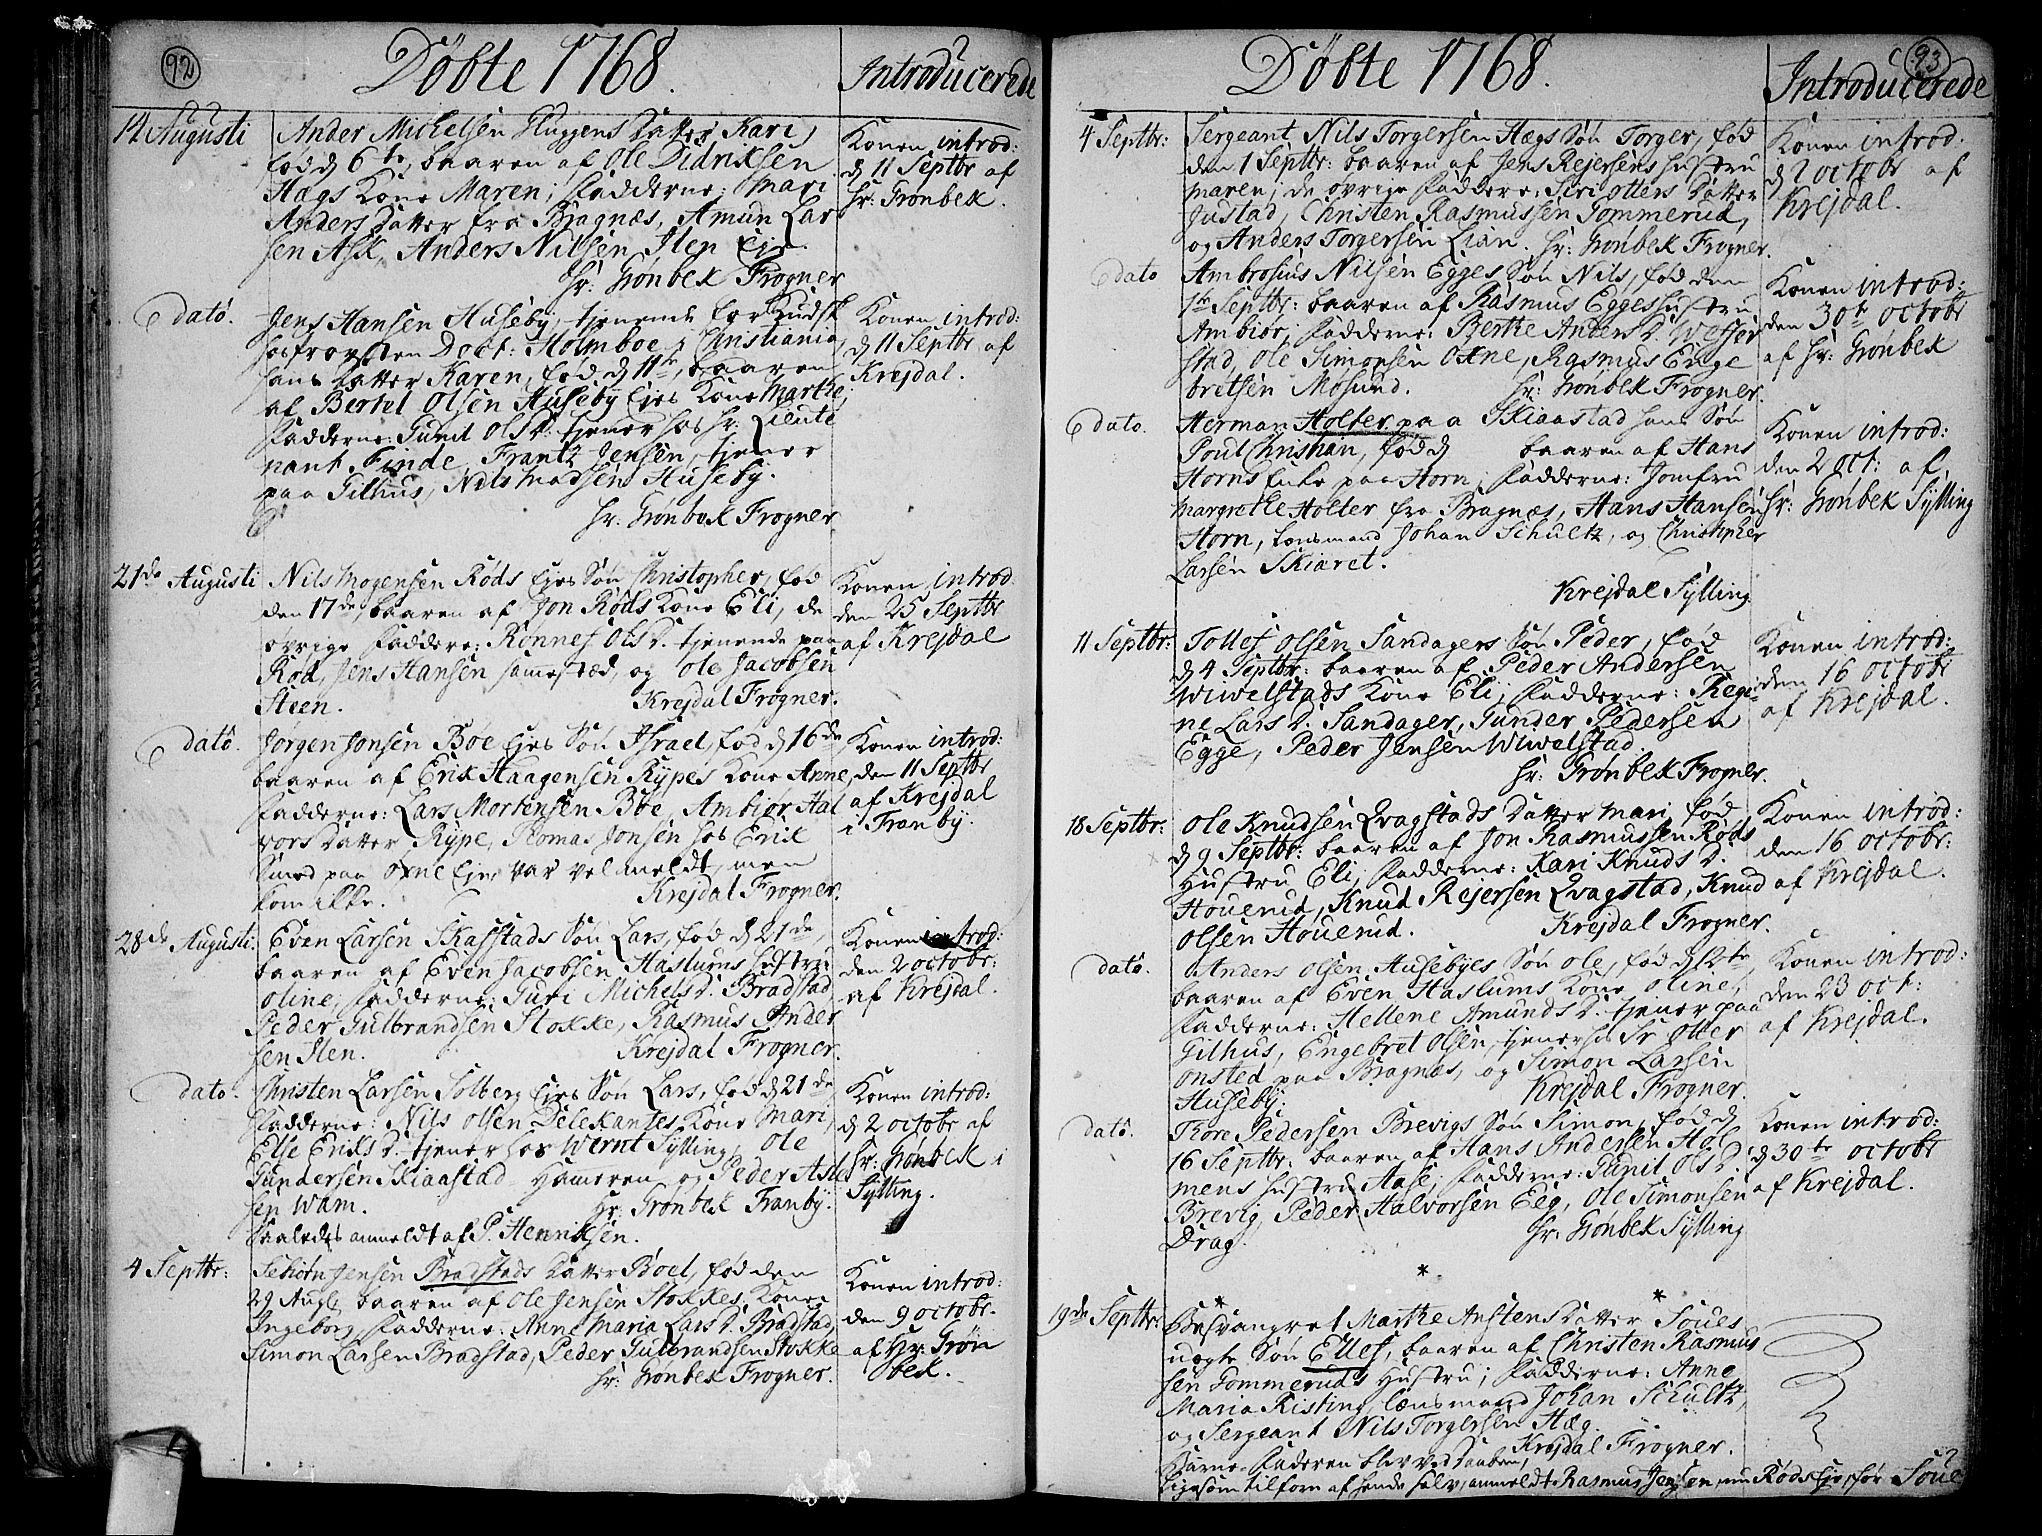 92
Döbte 1768.
Introducerede
14 Augusti
Ander Michelsen Huggens Datter Kari,
fød d 6te, baaren af Ole Didriksen
Hægs Kone Maren; Fadderne: Mari
Anders Datter fra Bragnæs, Amun Lar
sen Ask, Anders Nilsen Sten Eje.
Hr: Grönbek Frogner
Konen introd:
d 11 Septbr af
Hr: Grönbek.
dato.
Jens Hansen Huseby, tjenende for Kudsk
hos Provsten Doct: Holmboe i Christiania,
hans Datter Karen, fød d 11te, baaren
af Bertel Olsen Huseby Ejes Kone Marthe,
Fadderne: Gunil Ols D. tjener hos Hr: Lieute
nant Finde, Frantz Jensen, tjener
paa Gilhus, Nils Madsen Huseby.
Hr: Grönbek Frogner
Konen introd:
d 11 Septbr af
Krejdal.
21de Augusti
Nils Mogensen Röds Ejes Sön Christopher, fød
den 17de, baaren af Jon Röds Kone Eli, de
övrige Faddere: Rönnef Ols D. tjenende paa
Röd, Jens Hansen sammestæd, og Ole Jacobsen
Steen.
Krejdal Frogner.
Konen introd.
den 25 Septbr
af Krejdal
dato.
Jörgen Jonsen Böe Ejes Sön Israel, fød d 16de
baaren af Erik Haagensen Rypes Kone Anne,
Fadderne: Lars Mortensen Böe, Ambiör Hal
vors Datter Rype, Thomas Jonsen hos Erik
Smed paa Oxne Eje, var vel meldt, men
kom ikke.
Krejdal Frogner.
Konen introd:
den 11 Septbr
af Krejdal
i Tranby.
28de Augusti.
Even Larsen Skafstads Sön Lars, fød d 21de,
baaren af Even Jacobsen Haslums Hustru
Oline; Fadderne: Guri Michels D. Bradstad,
Peder Gulbrandsen Stokke, Rasmus Ander
sen Sten.
Krejdal Frogner.
Konen introd:
den 2 octobr.
af Krejdal.
dato.
Christen Larsen Solberg Ejes Sön Lars, fød d 21de,
Fadderne: Nils Olsen Delekantes Kone Mari,
Else Eriks D. tjener hos Wernt Sylling, Ole
Gundersen Skiaastad Hameren, og Peder Asle
sen Wam.
Hr: Grönbek Tranby.
Saaledes anmeldt af P. Henriksen.
Konen introd:
d 2 octobr af
Hr: Grönbek i
Sylling.
4 Septbr:
Sehiörn Jensen Bradstads Datter Böel, fød den
29 Augs, baaren af Ole Jensen Stokkes Kone
Ingeborg, Fadderne: Anne Maria Lars D. Bradstad,
Simon Larsen Bradstad, Peder Gulbrandsen Stokke
Hr: Grönbek Frogner.
Konen introd:
den 9 octobr.
af Hr: Grön
bek.
93
Döbte 1768.
Introducerede
4 Septbr:
Sergeant Nils Torgersen Hægs Sön Torger, fød
den 1 Septbr: baaren af Jens Rejersens Hustru
Maren; de övrige Faddere: Siri Otters Datter
Justad, Christen Rasmussen Gommerud,
og Anders Torgersen Lian. Hr: Grönbek Frogner.
Konen introd.
d 2 octobr af
Krejdal.
dato
Ambrosius Nilsen Egges Sön Nils, fød den
1te Septbr: baaren af Rasmus Egges Hustru
Ambiör; Fadderne: Berthe Anders D. Wefser
stad, Ole Simonsen Oxne, Rasmus Enge
bretsen Mosund.
Hr: Grönbek Frogner.
Konen introd:
den 30te octobr
af Hr: Grönbek
dato.
Herman Holter paa Skiaastad hans Sön
Poul Christian, fød d baaren af Hans
Horns Enke paa Horn; Fadderne: Jomfru
Margrethe Holter fra Bragnæs, Hans Hansen
Horn, Lensmand Johan Schultz, og Christopher
Larsen Skiæret.
Krejdal Sylling
Konen introd:
den 2 oct: af
Hr: Grönbek Sylling
11 Septbr:
Tollef Olsen Sandagers Sön Peder, fød
d 4 Septbr: baaren af Peder Andersen
Wiwelstads Kone Eli; Fadderne: Regi
ne Lars D. Sandager, Gunder Pedersen
Egge, Peder Jensen Wiwelstad.
Hr: Grönbek Frogner.
Konen introd:
den 16 octobr
af Krejdal.
18 Septbr:
Ole Knudsen Qvagstads Datter Mari, fød
d 9 Septbr: baaren af Jon Rasmussen Röds
Hustru Eli, Fadderne: Kari Knuds D.
Houerud, Knud Rejersen Qvagstad, Knud
Olsen Houerud.
Krejdal Frogner.
Konen introd:
den 16 octobr:
af Krejdal.
dato.
Anders Olsen Husebyes Sön Ole, fød d 12te
baaren af Even Haslums Kone Oline,
Fadderne: Hellene Amunds D. tjener paa
Gilhus, Engebret Olsen, tjener hos Sr Otter
Onsted paa Bragnæs, og Simon Larsen
Huseby.
Krejdal Frogner.
Konen introd:
den 23 oct:
af Krejdal.
dato.
Thore Pedersen Brevigs Sön Simon, fød d
16 Septbr: baaren af Hans Andersen Hol
mens Hustru Aase, Fadderne: Gunil Ols D.
Brevig, Peder Halvorsen Eeg, Ole Simonsen
Drag.
Hr: Grönbek Sylling
Konen introd:
d 30te octobr
af Krejdal.
19de Septbr:
Besvangret Marthe Anstens Datter Soues
uægte Sön Ellef, baaren af Christen Rasmus
sen Gommeruds Hustru; Fadderne: Anne
Maria Risting, Lænsmand Johan Schultz,
og Sergeant Nils Torgersen Hæg.
Krejdal Frogner.
Barne-Faderen blev ved Daaben,
ligesom tilforn af hende selv, anmeldt Rasmus Jensen, nu Röds Eje, för Soue